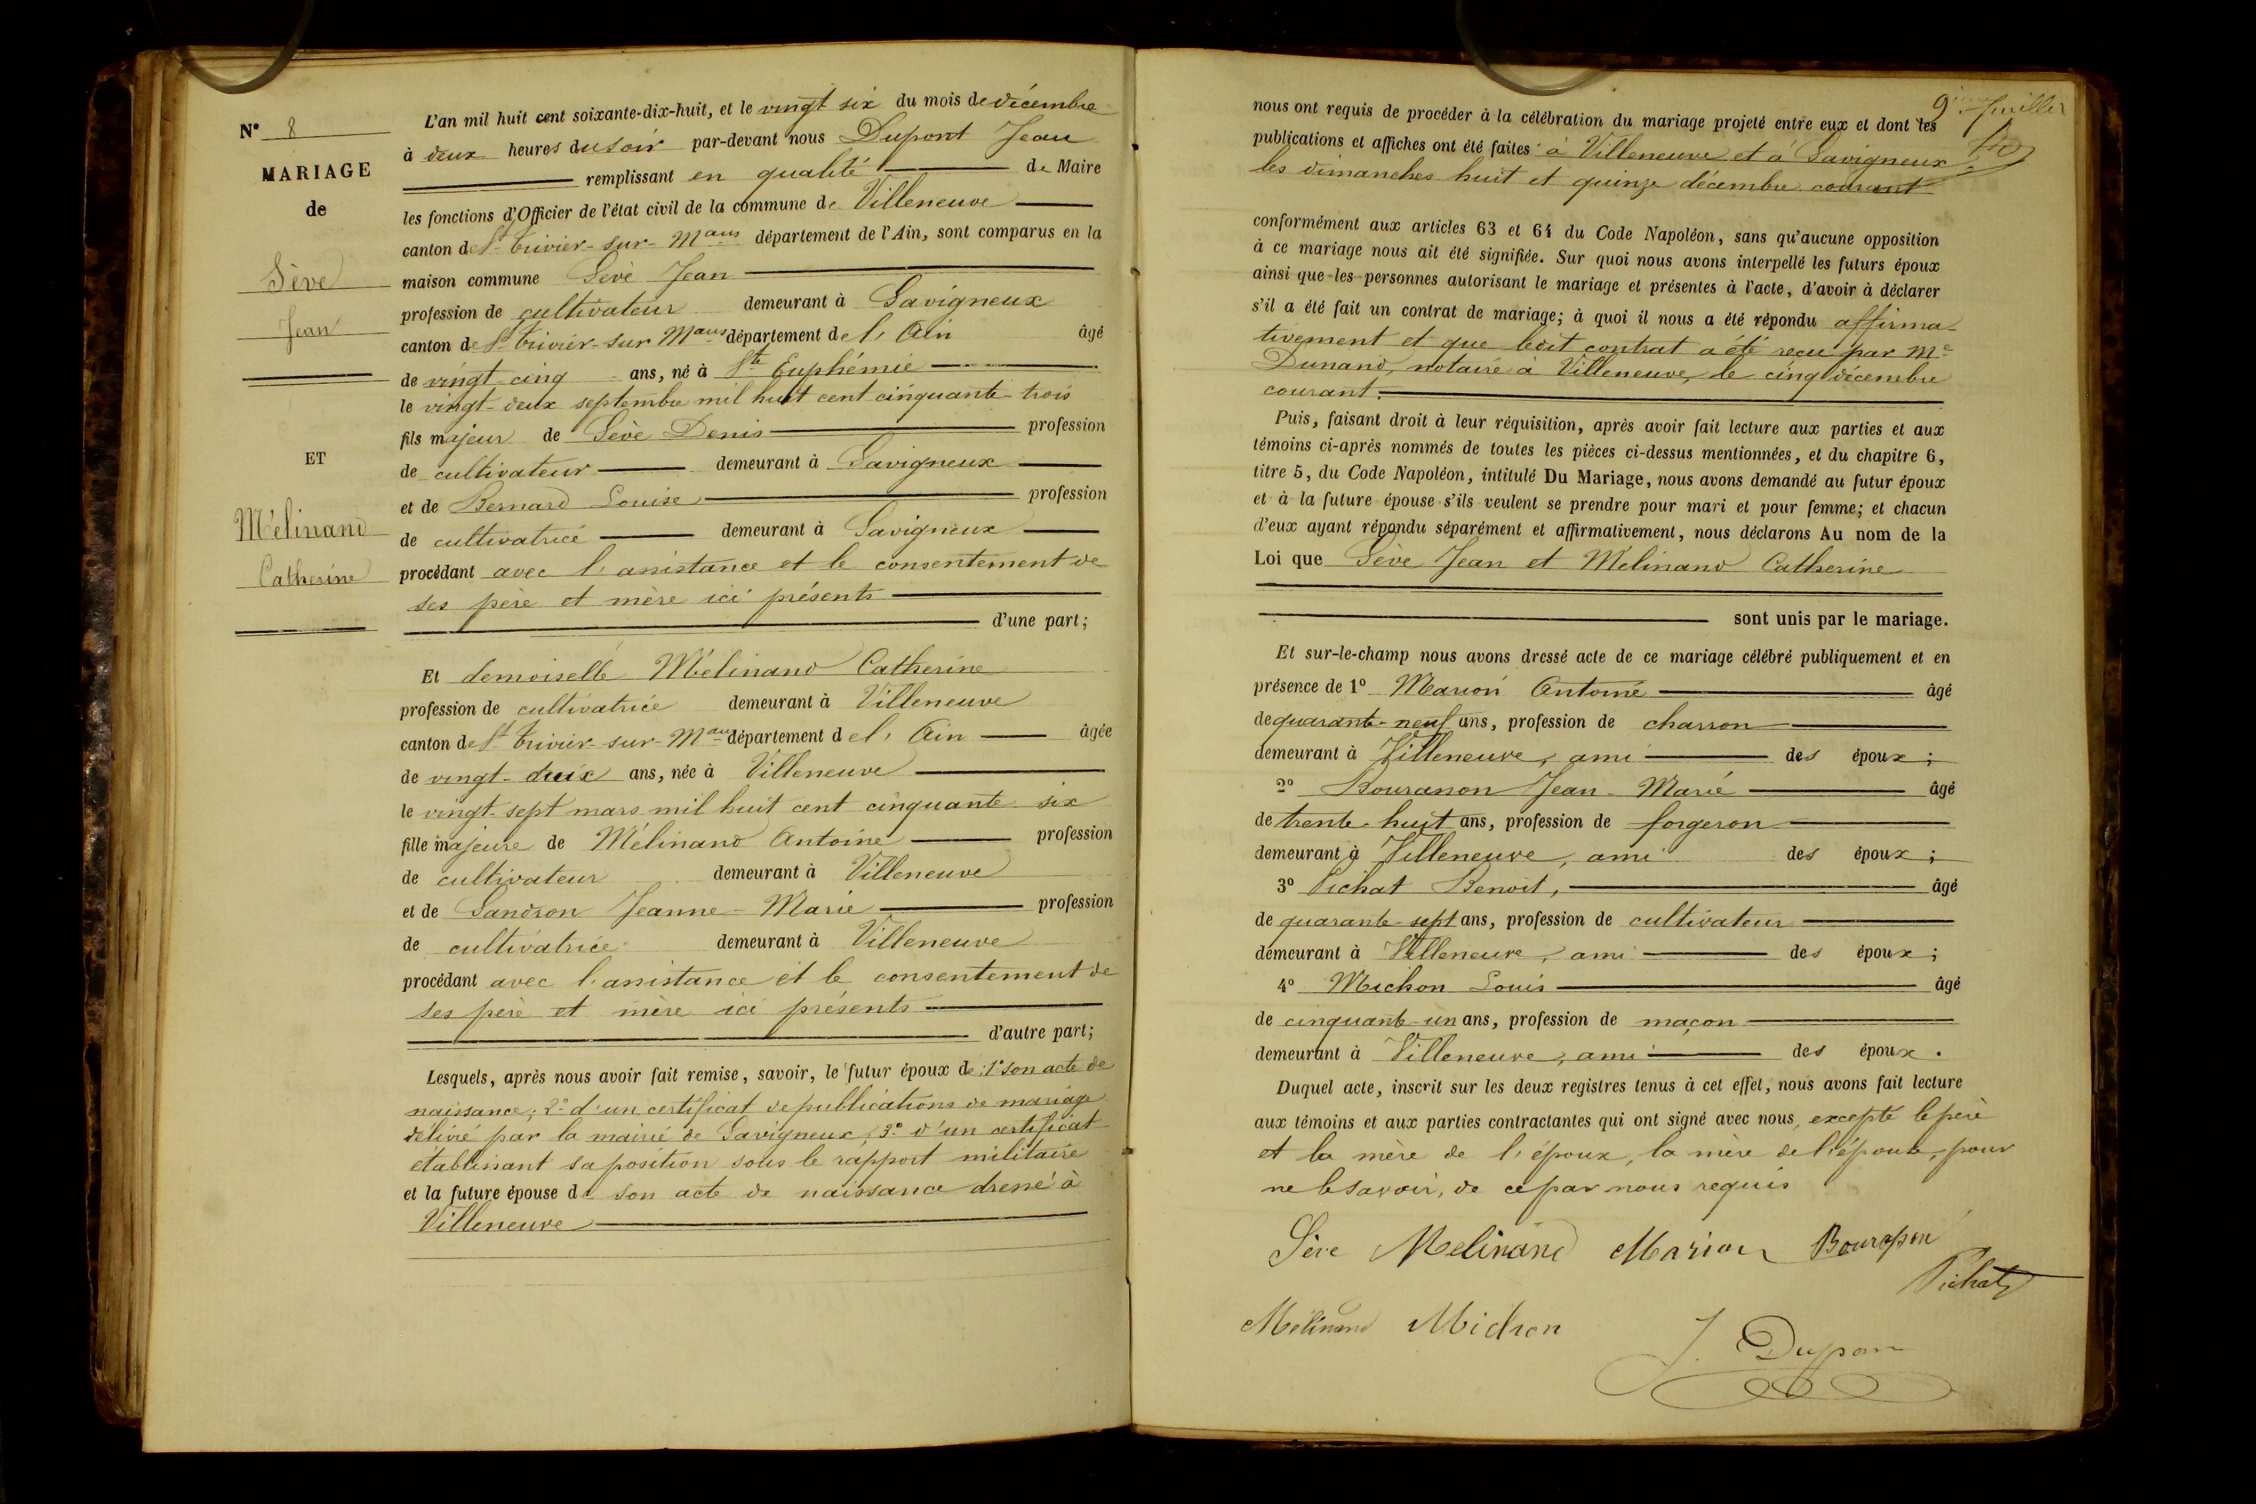 N° 8
MARIAGE
de
Sève
Jean
ET
Mélinand
Catherine
L'an mil huit cent soixante-dix-huit, et le vingt six du mois de décembre
à deux heures du soir par-devant nous Dupont Jean
remplissant en qualité de Maire
les fonctions d'Officier de l'état civil de la commune de Villeneuve
canton de St Trivier-sur-Mans département de l'Ain, sont comparus en la
maison commune Sève Jean
profession de cultivateur demeurant à Savigneux
canton de St Trivier-sur-Mans département de l'Ain âgé
de vingt-cinq ans, né à Ste Euphémie
le vingt-deux septembre mil huit cent cinquante-trois
fils majeur de Sève Denis profession
de cultivateur demeurant à Savigneux
et de Bernard Louise profession
de cultivatrice demeurant à Savigneux
procédant avec l'assistance et le consentement de
ses père et mère ici présents
d'une part;
Et demoiselle Mélinand Catherine
profession de cultivatrice demeurant à Villeneuve
canton de St Trivier-sur-Mans département de l'Ain âgée
de vingt-deux ans, née à Villeneuve
le vingt-sept mars mil huit cent cinquante-six
fille majeure de Mélinand Antoine profession
de cultivateur demeurant à Villeneuve
et de Sandron Jeanne-Marie profession
de cultivatrice demeurant à Villeneuve
procédant avec l'assistance et le consentement de
ses père et mère ici présents
d'autre part;
Lesquels, après nous avoir fait remise, savoir, le futur époux de: 1° son acte de
naissance; 2° d'un certificat de publications de mariage
délivré par la mairie de Savigneux; 3° d'un certificat
établissant sa position sous le rapport militaire
et la future épouse de son acte de naissance dressé à
Villeneuve
9ème feuillet
nous ont requis de procéder à la célébration du mariage projeté entre eux et dont les
publications et affiches ont été faites à Villeneuve et à Savigneux
les dimanches huit et quinze décembre courant
conformément aux articles 63 et 64 du Code Napoléon, sans qu'aucune opposition
à ce mariage nous ait été signifiée. Sur quoi nous avons interpellé les futurs époux
ainsi que les personnes autorisant le mariage et présentes à l'acte, d'avoir à déclarer
s'il a été fait un contrat de mariage; à quoi il nous a été répondu affirma-
tivement et que ledit contrat a été reçu par Me
Dunand, notaire à Villeneuve, le cinq décembre
courant.
Puis, faisant droit à leur réquisition, après avoir fait lecture aux parties et aux
témoins ci-après nommés de toutes les pièces ci-dessus mentionnées, et du chapitre 6,
titre 5, du Code Napoléon, intitulé Du Mariage, nous avons demandé au futur époux
et à la future épouse s'ils veulent se prendre pour mari et pour femme; et chacun
d'eux ayant répondu séparément et affirmativement, nous déclarons Au nom de la
Loi que Sève Jean et Mélinand Catherine
sont unis par le mariage.
Et sur-le-champ nous avons dressé acte de ce mariage célébré publiquement et en
présence de 1° Marion Antoine âgé
de quarante-neuf ans, profession de charron
demeurant à Villeneuve, ami des époux;
2° Bourasson Jean-Marie âgé
de trente-huit ans, profession de forgeron
demeurant à Villeneuve, ami des époux;
3° Pichat Benoit, âgé
de quarante-sept ans, profession de cultivateur
demeurant à Villeneuve, ami des époux;
4° Michon Louis âgé
de cinquante-un ans, profession de maçon
demeurant à Villeneuve, ami des époux.
Duquel acte, inscrit sur les deux registres tenus à cet effet, nous avons fait lecture
aux témoins et aux parties contractantes qui ont signé avec nous, excepté le père
et la mère de l'époux, la mère de l'épouse, pour
ne le savoir, de ce par nous requis
Sève Melinand Marion Bourasson
Pichat
Mélinand Michon
J. Dupont